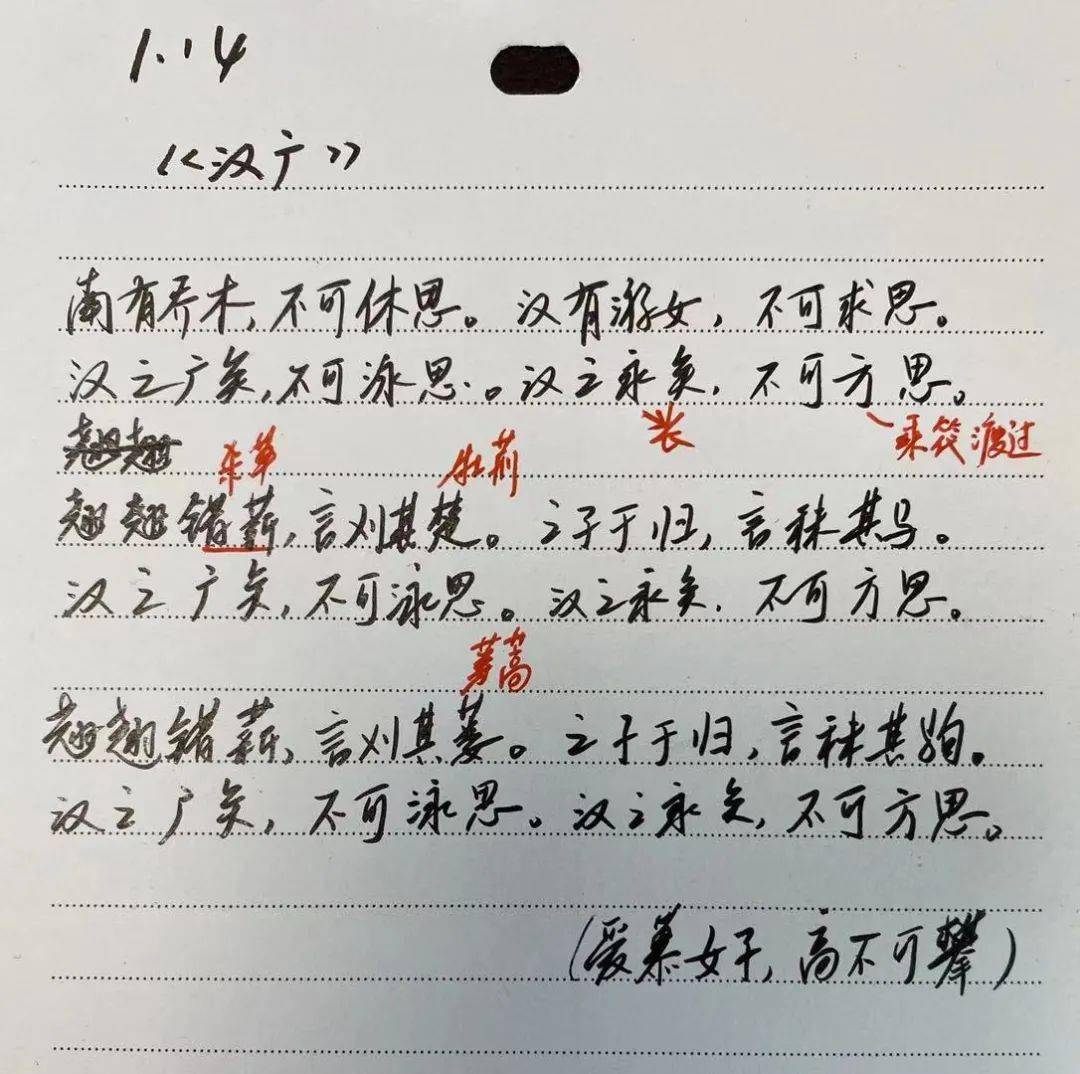 1.14
《汉广》
南有乔木,不可休思。汉有游女,不可求思。
汉之广矣,不可泳思。汉之永矣,不可方思。
长 乘筏渡过
翘翘 杂草 牡荆
翘翘错薪,言刈其楚。之子于归,言秣其马。
汉之广矣,不可泳思。汉之永矣,不可方思。
蒌蒿
翘翘错薪,言刈其蒌。之子于归,言秣其驹。
汉之广矣,不可泳思。汉之永矣,不可方思。
(爱慕女子,高不可攀)